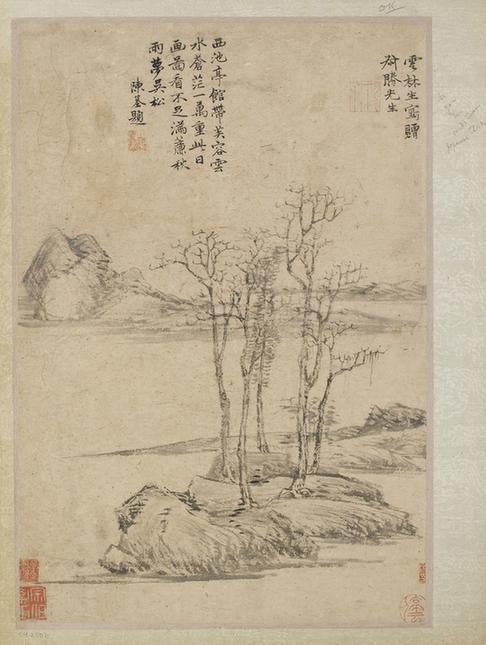 OK
雲林生寫贈
勝先生
西池亭館帶芙容雲
水蒼茫一萬重此日
画啚看不足滿簾秋
雨夢吳松
陳基題